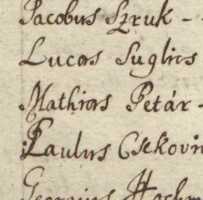 Jacobus Szruk -
Lucas Suglics
Mathias Petár -
Paulus Csekovi
Georgius Hochm